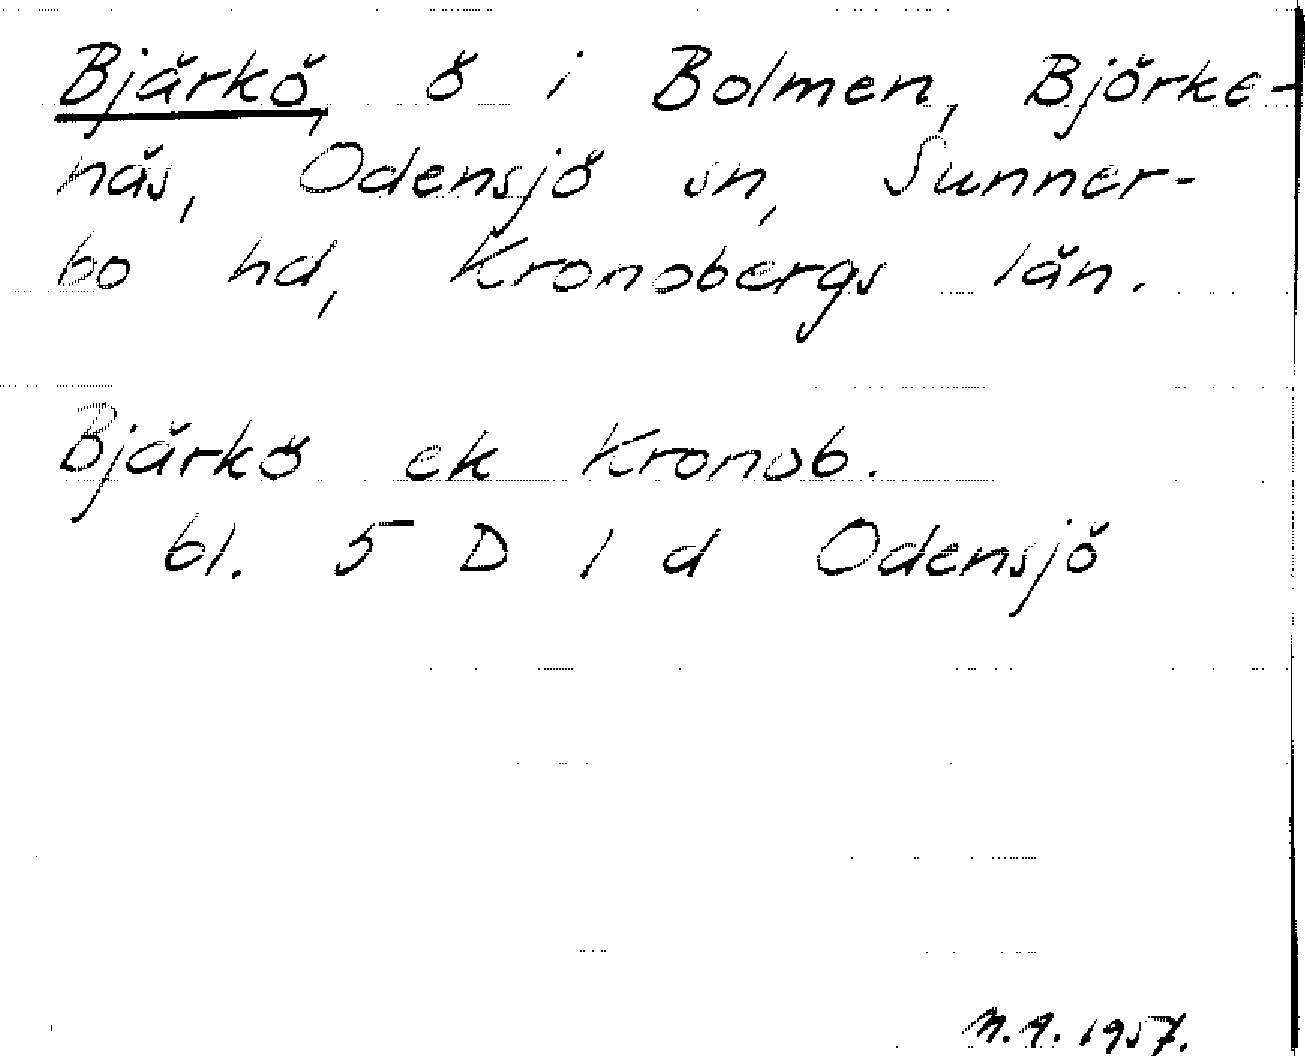 Bjärkö, ö i Bolmen, Björke-
näs, Odensjö sn, Sunner-
bo hd, Kronobergs län.
Bjärkö ek Kronob.
bl. 5 D 1 d Odensjö
1957.